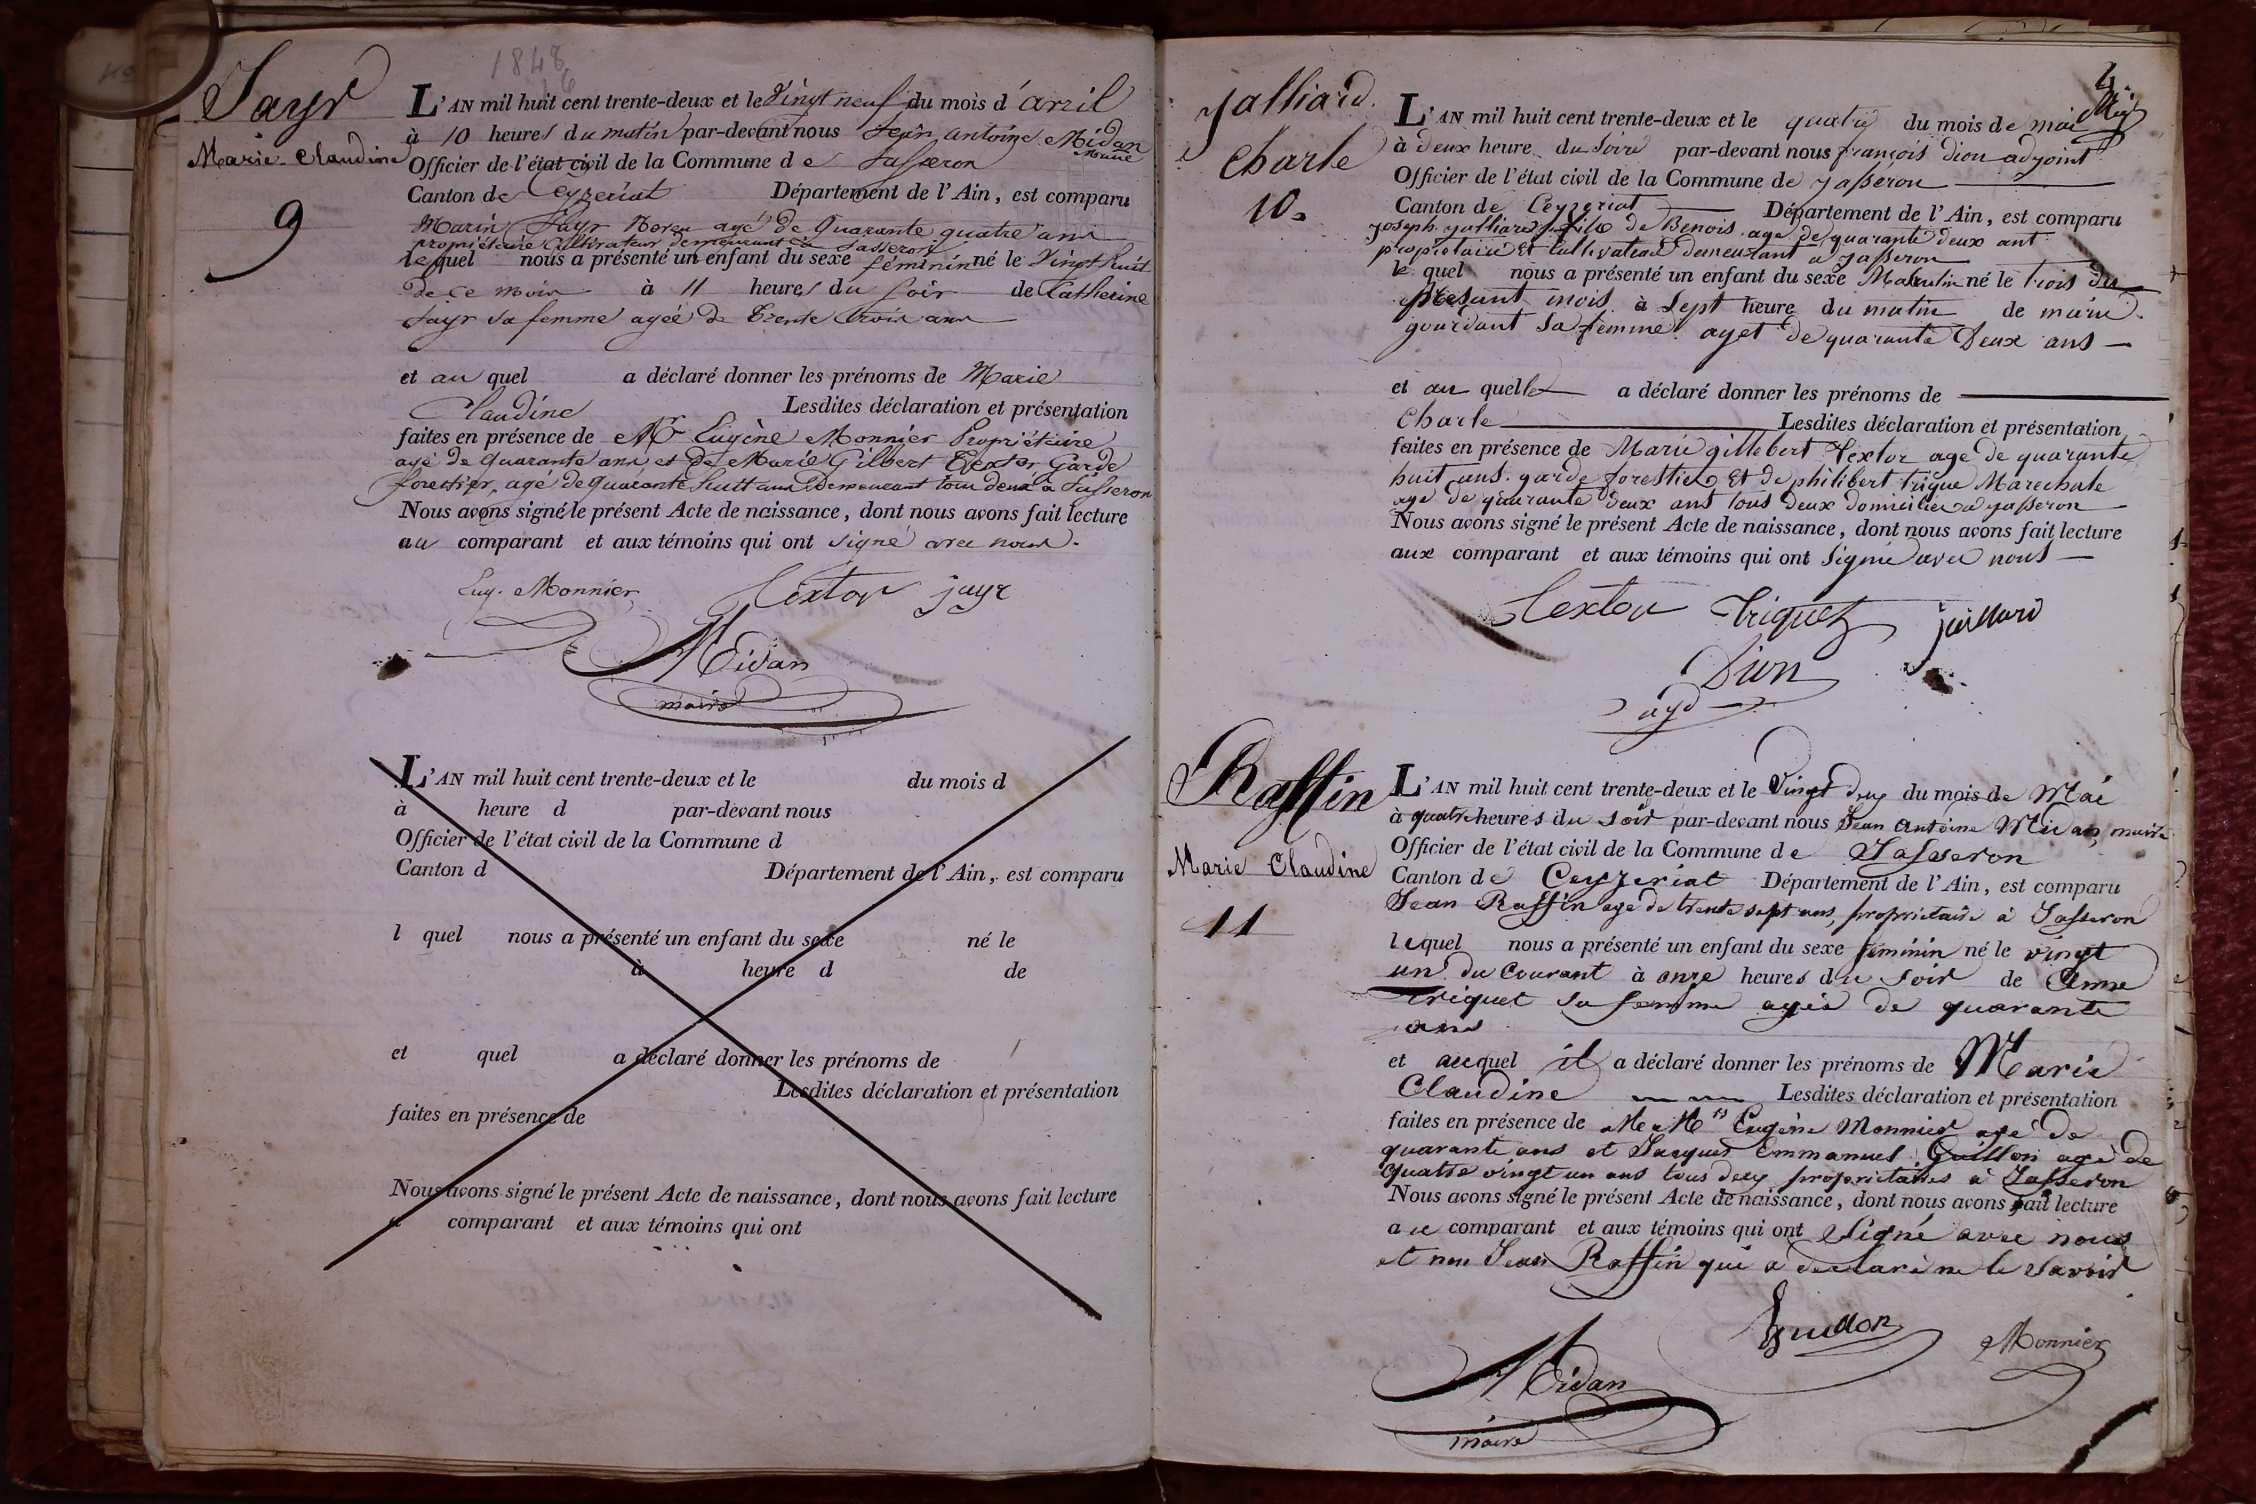 1848
Jayr
Marie-Claudine
9
L'AN mil huit cent trente-deux et le Vingt neuf du mois d'avril
à 10 heures du matin par-devant nous Jean antoine Midan
Maire
Officier de l'état civil de la Commune de Jasseron
Canton de Ceyzeriat Département de l'Ain, est comparu
Marin Jayr agé de Quarante quatre ans
propriétaire Cultivateur demeurant à Jasseron
lequel nous a présenté un enfant du sexe féminin né le Vingt huit
de ce mois à 11 heures du soir de Catherine
Jayr sa femme agéé de Trente trois ans
et au quel a déclaré donner les prénoms de Marie
Claudine Lesdites déclaration et présentation
faites en présence de Mr Eugène Monnier Propriétaire
agé de Quarante ans et de Marie Gilbert Textor, Garde
forestier, agé de Quarante huit ans Demeurant tous deux à Jasseron
Nous avons signé le présent Acte de naissance, dont nous avons fait lecture
au comparant et aux témoins qui ont signé avec nous.
Eug. Monnier Textor jayr
Midan
maire
L'AN mil huit cent trente-deux et le du mois d
à heure d par-devant nous
Officier de l'état civil de la Commune d
Canton d Département de l'Ain, est comparu
l quel nous a présenté un enfant du sexe né le
à heure d de
et quel a déclaré donner les prénoms de
Lesdites déclaration et présentation
faites en présence de
Nous avons signé le présent Acte de naissance, dont nous avons fait lecture
a comparant et aux témoins qui ont
4
yalliard
charle
10
L'AN mil huit cent trente-deux et le quatre du mois de mai
à deux heure du soire par-devant nous françois dion adyoint
Officier de l'état civil de la Commune de yasseron
Canton de Ceyzeriat Département de l'Ain, est comparu
yoseph yalliard fils de Benois age de quarante deux ant
propietaire Et Cultivateur demeurant a yasseron
le quel nous a présenté un enfant du sexe Masculin né le trois du
presant mois à Sept heure du matin de marie
gourdant sa femme ayet de quarante Deux ans
et au quelle a déclaré donner les prénoms de
Charle Lesdites déclaration et présentation
faites en présence de Marie gillebert Textor age de quarante
huit ans. garde forestier Et de philibert trique Marechale
age de quarante deux ans tous deux domicilies a yasseron
Nous avons signé le présent Acte de naissance, dont nous avons fait lecture
aux comparant et aux témoins qui ont signe avec nous
Textor Triquet jaillard
Dion
ayd
Raffin
Marie Claudine
11
L'AN mil huit cent trente-deux et le Vingt deux du mois de Mai
à quatre heures du soir par-devant nous Jean Antoine Midan, maire
Officier de l'état civil de la Commune de Jasseron
Canton de Ceyzeriat Département de l'Ain, est comparu
Jean Raffin agé de trente sept ans, propriétaire à Jasseron
lequel nous a présenté un enfant du sexe féminin né le vingt
un du Courant à onze heures du soir de Anne
Triquet sa femme agée de quarante
ans
et auquel il a déclaré donner les prénoms de Marie
Claudine Lesdites déclaration et présentation
faites en présence de MM rs Eugène Monnier agé de
quarante ans et Jacques Emmanuel Guillon agé de
quatre vingt un ans tous deux propriétaires à Jasseron
Nous avons signé le présent Acte de naissance, dont nous avons fait lecture
au comparant et aux témoins qui ont signé avec nous
et non Jean Raffin qui a déclaré ne le savoir
Guillon Monnier
Midan
maire